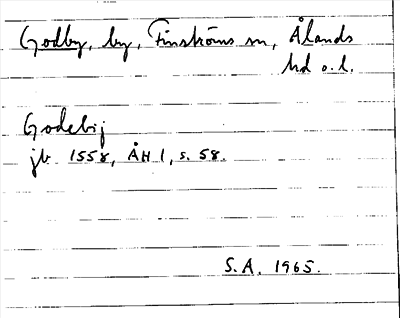 Godby, by, Finströms sn, Ålands
hd o. l.
Godebij
jb 1558, ÅH 1, s. 58.
S.A. 1965.